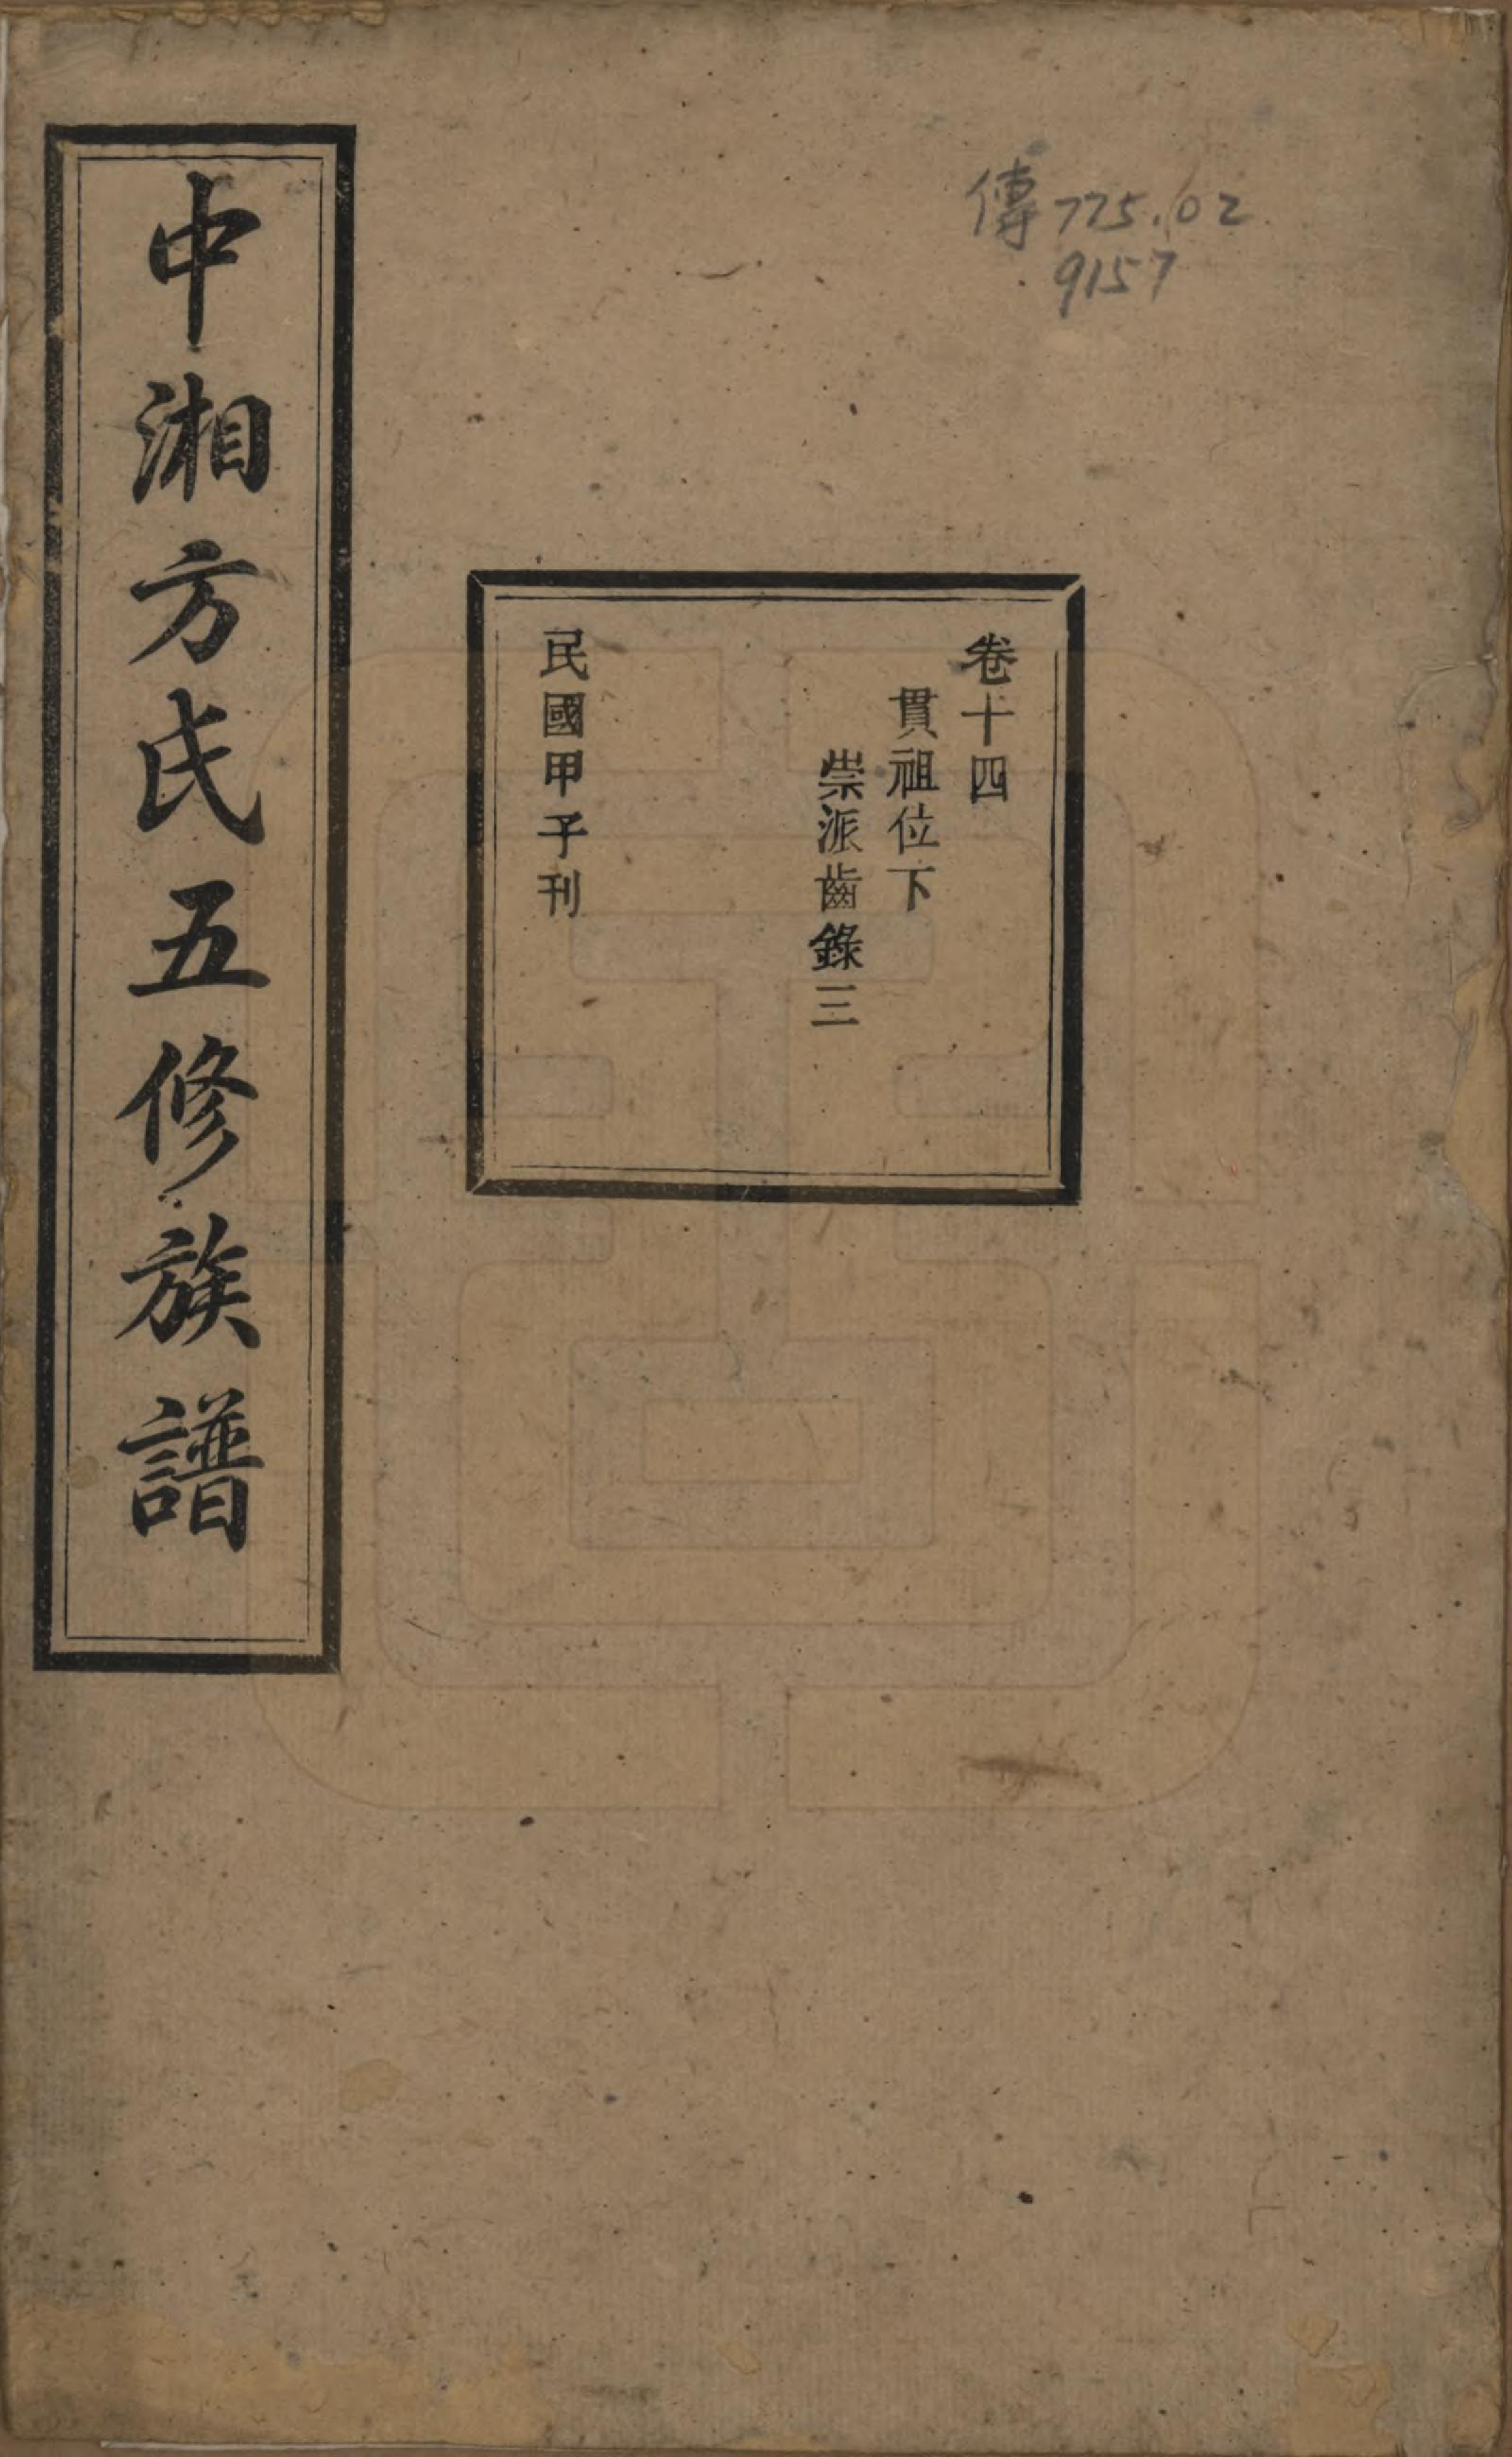 傳775.02
9157
卷十四
貫祖位下
崇派齒錄三
民國甲子刊
中湘方氏五修族譜